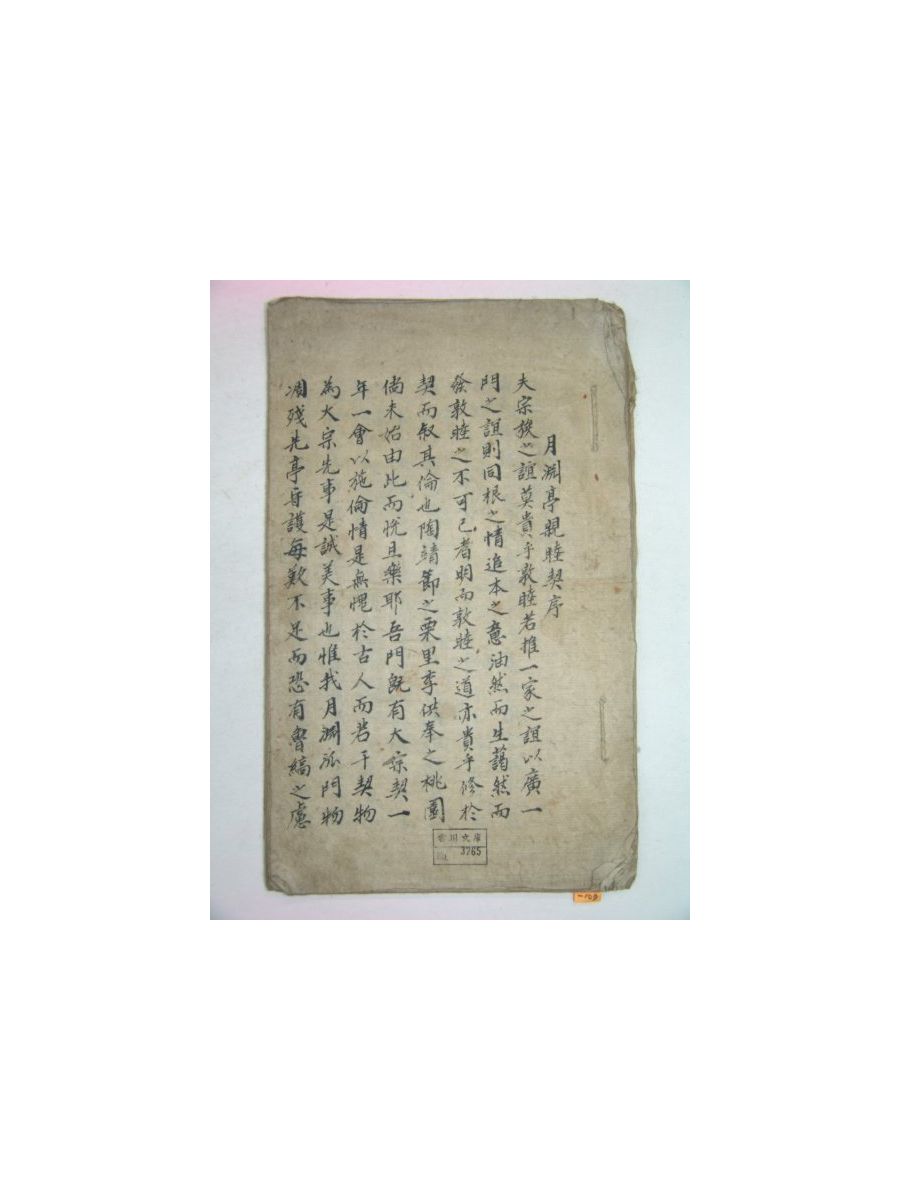 月淵亭親睦契序
夫宗族之誼莫貴乎敦睦若推一家之誼以廣一
門之誼則同根之情追本之意油然而生藹然而
發敦睦之不可已者明而敦睦之道亦貴乎修於
契而敍其倫也陶靖節之栗里李供奉之桃園
倘未始由此而悅且樂耶吾門旣有大宗契一
年一會以施倫情是無愧於古人而若干契物
為大宗先事是誠美事也惟我月淵派門物
凋殘先亭守護每歎不足而恐有魯縞之慮
文庫
3765